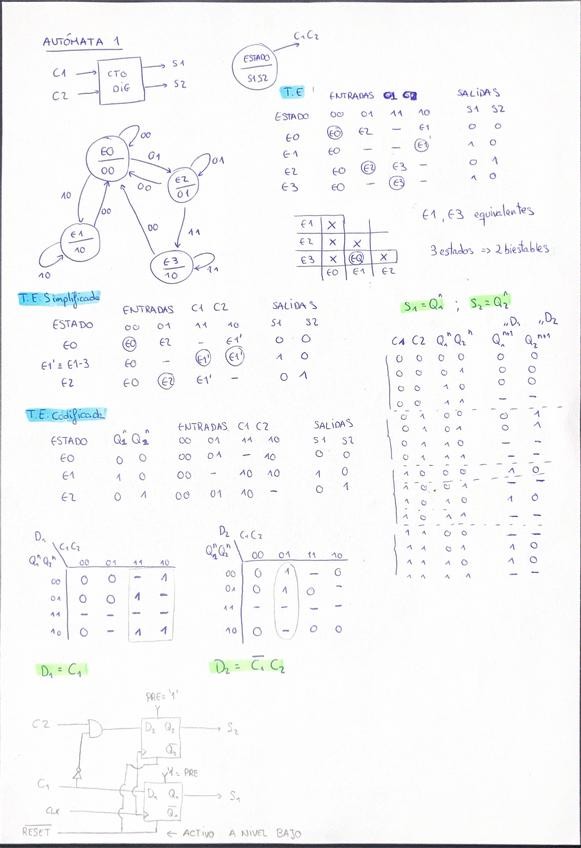 AUTÓMATA 1
C1
C2
CTO
DIG
S1
S2
ESTADO
S1S2
C1C2
T.E
ENTRADAS C1 C2 SALIDAS
ESTADO 00 01 11 10 S1 S2
E0 E0 E2 - E1 0 0
E1 E0 - - E1 1 0
E2 E0 E2 E3 - 0 1
E3 E0 - E3 - 1 0
E0
00
00
01
00
E2
01
01
10
00
00
11
E1
10
10
E3
10
11
E1 X
E2 X X
E3 X EQ X
E0 E1 E2
E1, E3 equivalentes
3 estados => 2 biestables
T.E. Simplificada
ENTRADAS C1 C2 SALIDAS
ESTADO 00 01 11 10 S1 S2
E0 E0 E2 - E1' 0 0
E1' ≡ E1-3 E0 - E1' E1' 1 0
E2 E0 E2 E1' - 0 1
T.E. Codificada
ENTRADAS C1 C2 SALIDAS
ESTADO Q1ⁿ Q2ⁿ 00 01 11 10 S1 S2
E0 0 0 00 01 - 10 0 0
E1 1 0 00 - 10 10 1 0
E2 0 1 00 01 10 - 0 1
S1 = Q1ⁿ ; S2 = Q2ⁿ
"D1 "D2
C1 C2 Q1ⁿ Q2ⁿ Q1ⁿ⁺¹ Q2ⁿ⁺¹
0 0 0 0 0 0
0 0 0 1 0 0
0 0 1 0 0 0
0 0 1 1 - -
0 1 0 0 0 1
0 1 0 1 0 1
0 1 1 0 - -
0 1 1 1 - -
1 0 0 0 1 0
1 0 0 1 - -
1 0 1 0 1 0
1 0 1 1 - -
1 1 0 0 - -
1 1 0 1 1 0
1 1 1 0 1 0
1 1 1 1 - -
D1
C1C2
Q1ⁿQ2ⁿ 00 01 11 10
00 0 0 - 1
01 0 0 1 -
11 - - - -
10 0 - 1 1
D2
C1C2
Q1ⁿQ2ⁿ 00 01 11 10
00 0 1 - 0
01 0 1 0 -
11 - - - -
10 0 - 0 0
D1 = C1
D2 = C̅1 C2
PRE='1'
C2
D2 Q2
Q̅2
S2
'1'= PRE
C1
D1 Q1
Q̅1
S1
CLK
R̅E̅S̅E̅T̅
← ACTIVO A NIVEL BAJO